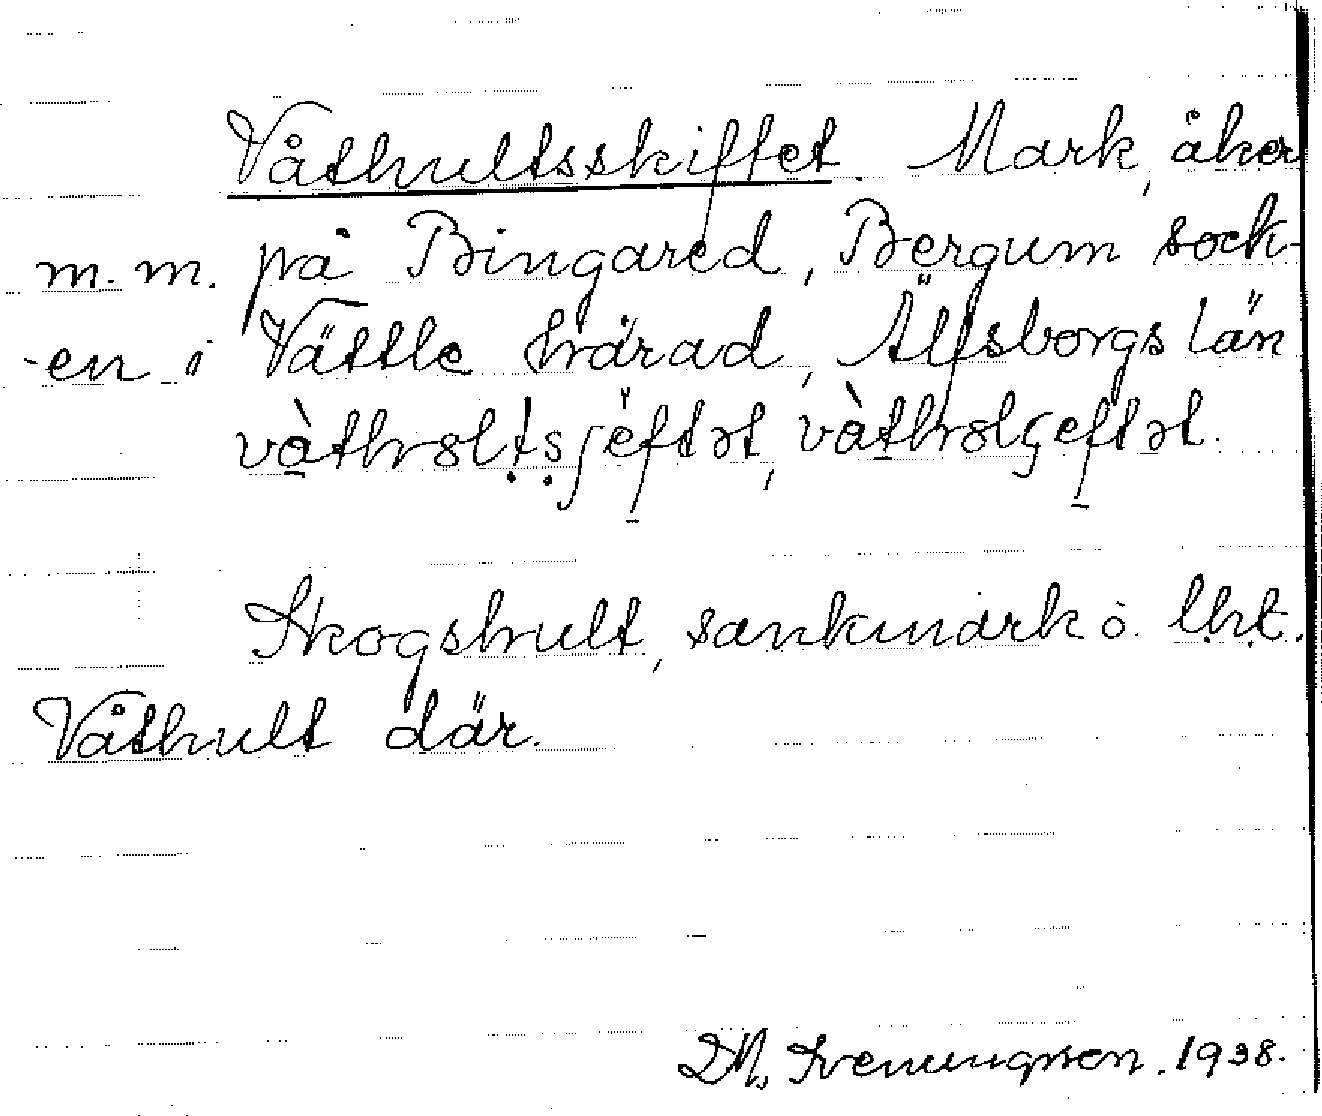 Våthultsskiftet. Mark, åker
m.m. på Bingared, Bergum sock-
-en i Vättle härad, Älfsborgs län
vàthɷltsʃèftət, vàthɷlʂeftət.
Skogshult, sankmark ö. lht.
Våthult där.
D.N. Sveningsson. 1938.